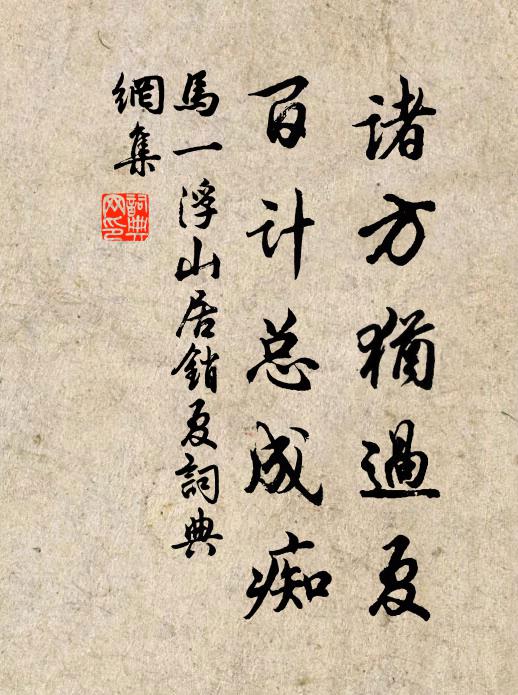 諸方猶過夏
百计总成痴
馬一浮山居銷夏詞典
網集
詞典網印